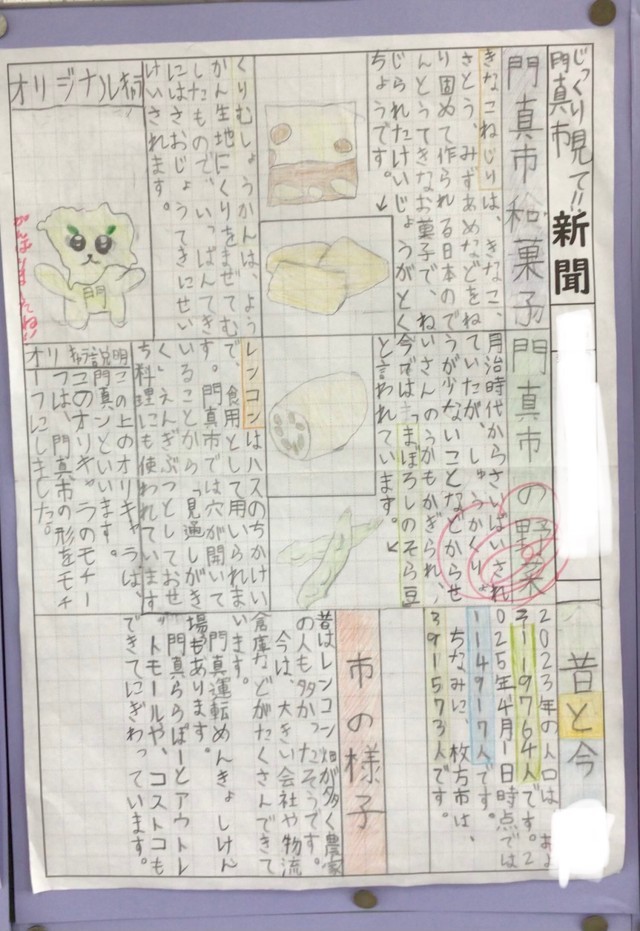 じっくり見て!!
門真市
新聞
門真市和菓子
きなこねじりは、きなこ、
さとう、みずあめなどをね
り固めて作られる日本ので
んとうてきなお菓子で、ね
じられたけいじょうがとく
ちょうです。↙
くりむしょうかんは、よう
かん生地にくりをまぜてむ
したもので、いっぱんてき
にはさおじょうてきにせい
けいされます。
オリジナルキャラ
門
門真市の野菜
月治時代からさいばいされ
ていたが、しゅうかくりょ
うが少ないことなどからせ
いさんのうかもかぎられ、
今では「まぼろしのそら豆
と言われています。↙
レンコンはハスのちかけい
で、食用として用いられま
す。門真市では穴が開いて
いることから「見通しがき
く」えんぎぶつとしておせ
ち料理にも使われています
説明
この上のオリキャラは、
門真ンといいます。
このオリキャラのモチー
フは、門真市の形をモチ
ーフにしました。
昔と今
2023年の人口は、およ
そ119764人です。2
025年4月1日時点では
114917人です。
ちなみに、枚方市は、
391573人です。
市の様子
昔はレンコン畑が多く農家
の人も多かったそうです。
今は、大きい会社や物流
倉庫などがたくさんできて
います。
門真運転めんきょしけん
場もあります。
門真ららぽーとアウトレ
ットモールや、コストコも
できてにぎわっています。